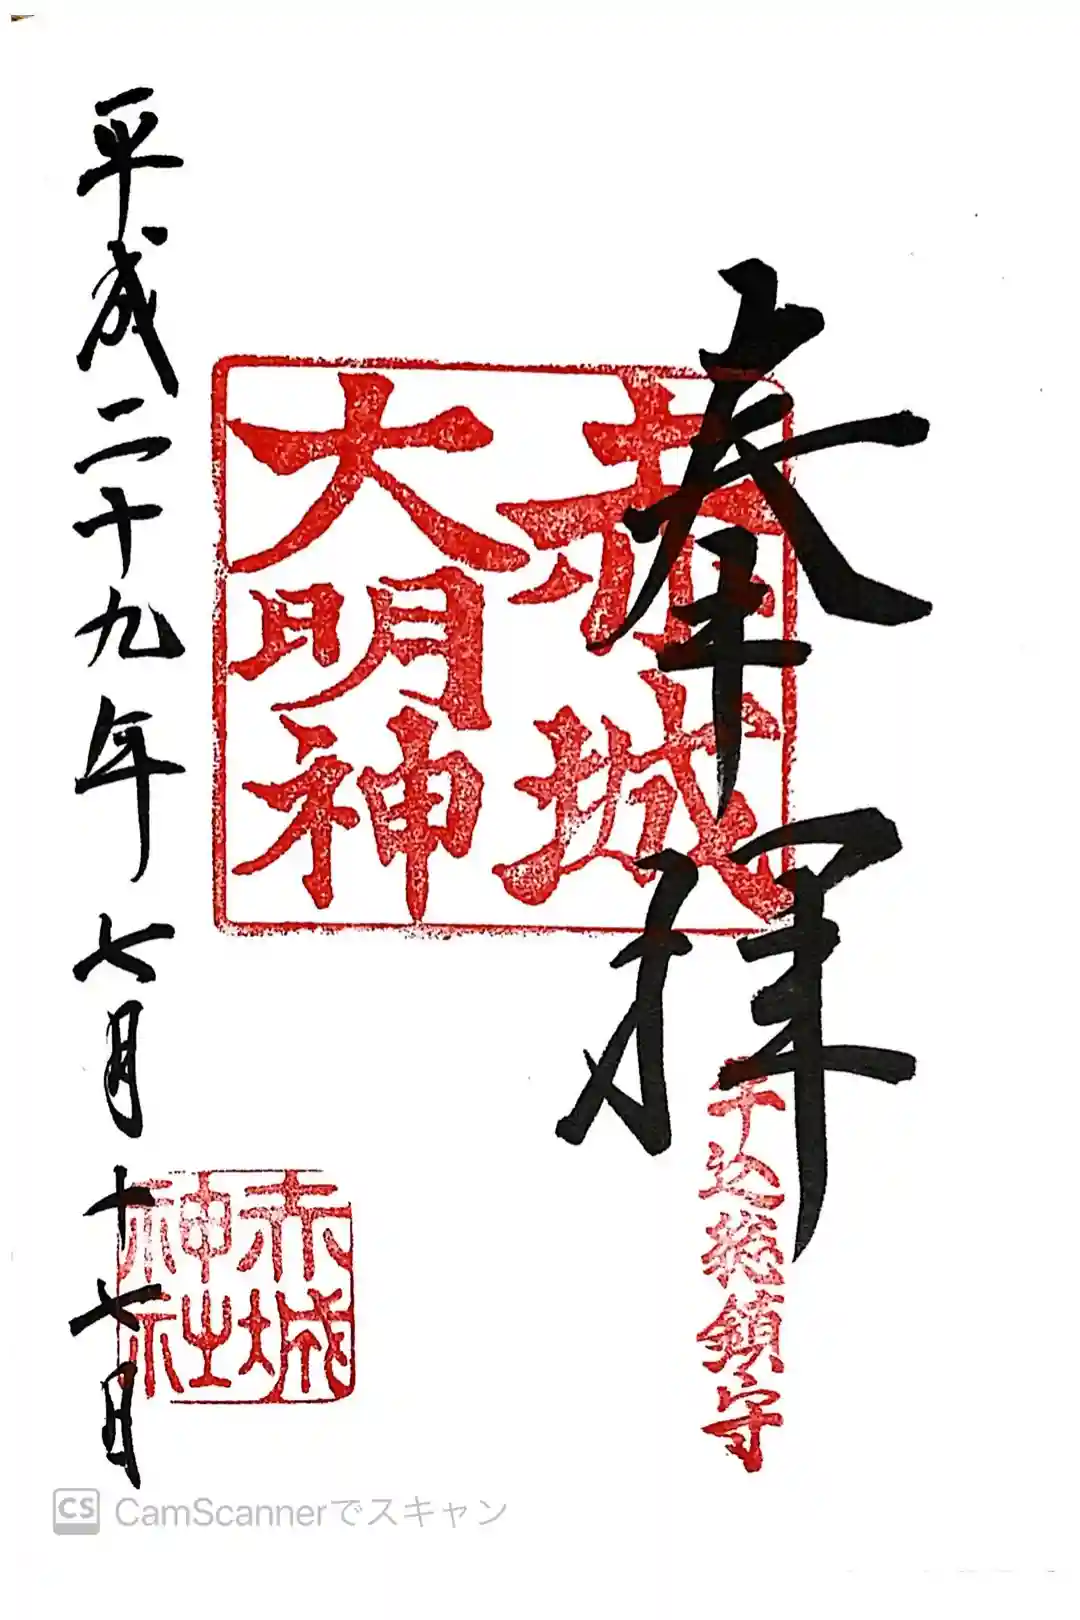 奉拝
牛込総鎮守
赤城
大明神
赤城
神社
平成二十九年七月十七日
CS CamScannerでスキャン